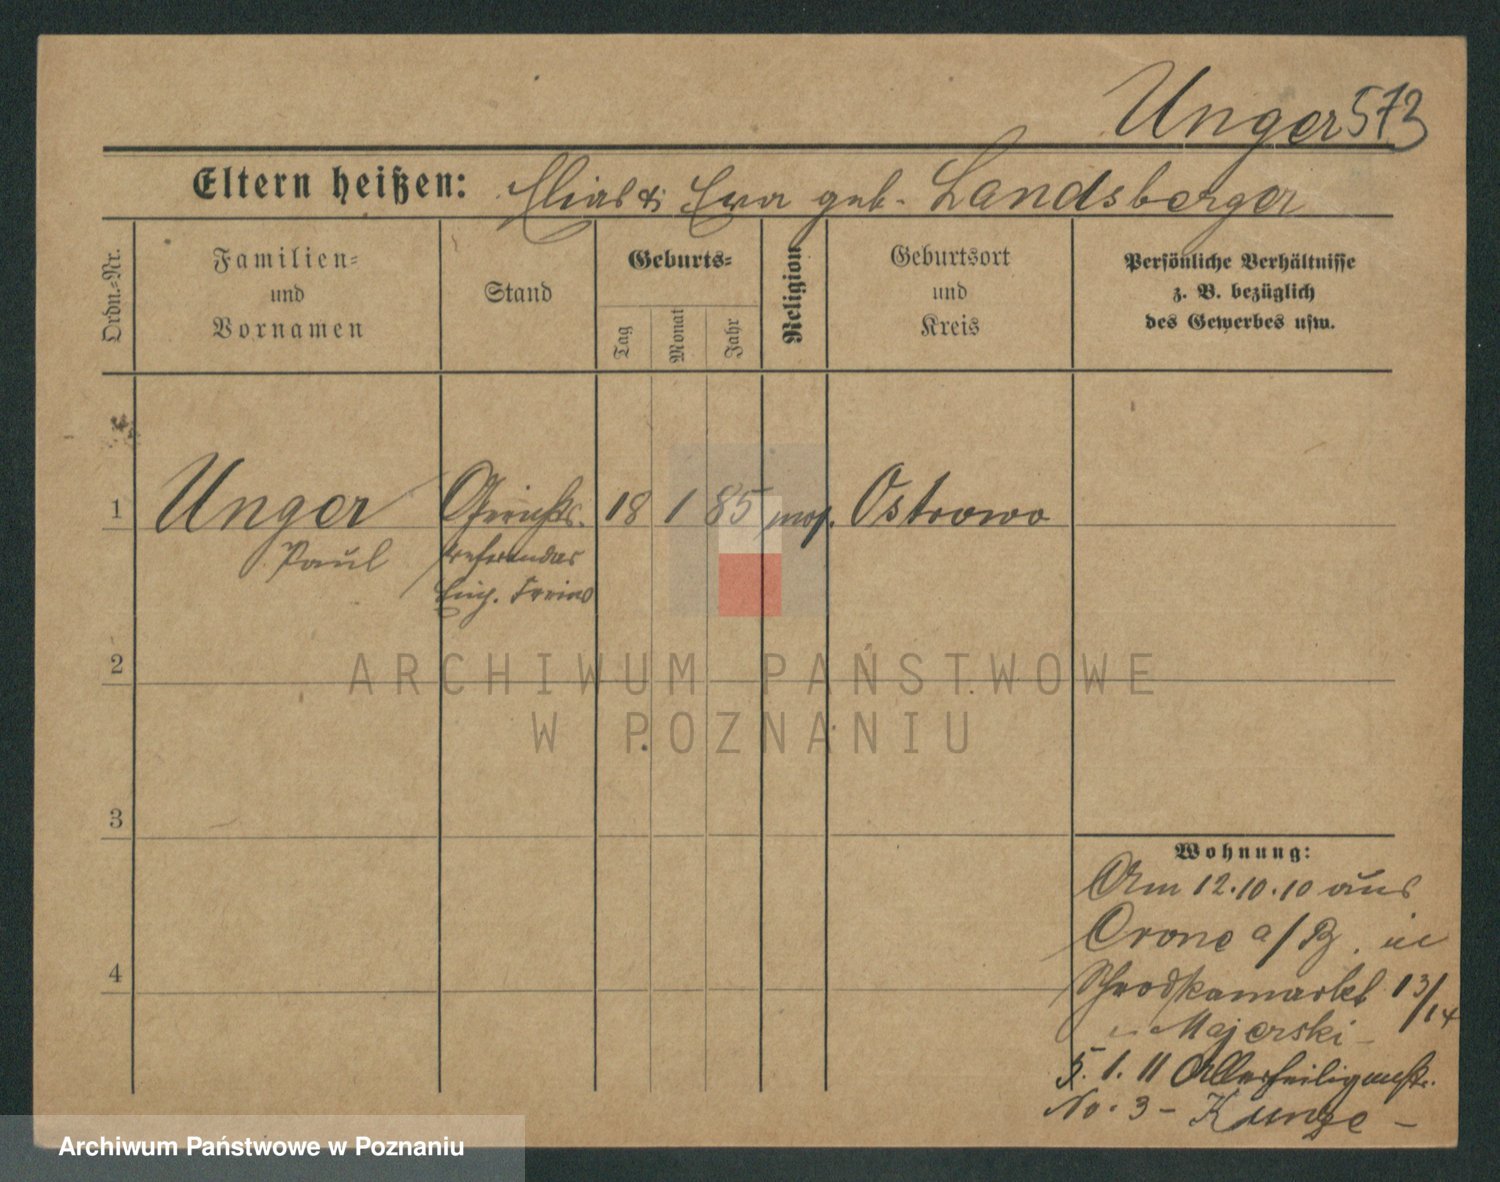 Unger 573
Eltern heißen: Elias & Ewa geb. Landsberger
Ordn.-Nr.
Familien-
und
Vornamen
Stand
Geburts-
Tag
Monat
Jahr
Religion
Geburtsort
und
Kreis
Persönliche Verhältnisse
z. B. bezüglich
des Gewerbes usw.
1 Unger Gerichts. 18 1 85 mos. Ostrowo
Paul referendar
2
3
4
Wohnung:
Am 12.10.10 aus
Crone a/B. in
Schrodkamarkt 13/14
Majerski -
5.1.11 Allerheiligenstr.
No. 3 - Kunze -
ARCHIWUM PAŃSTWOWE
W POZNANIU
Archiwum Państwowe w Poznaniu